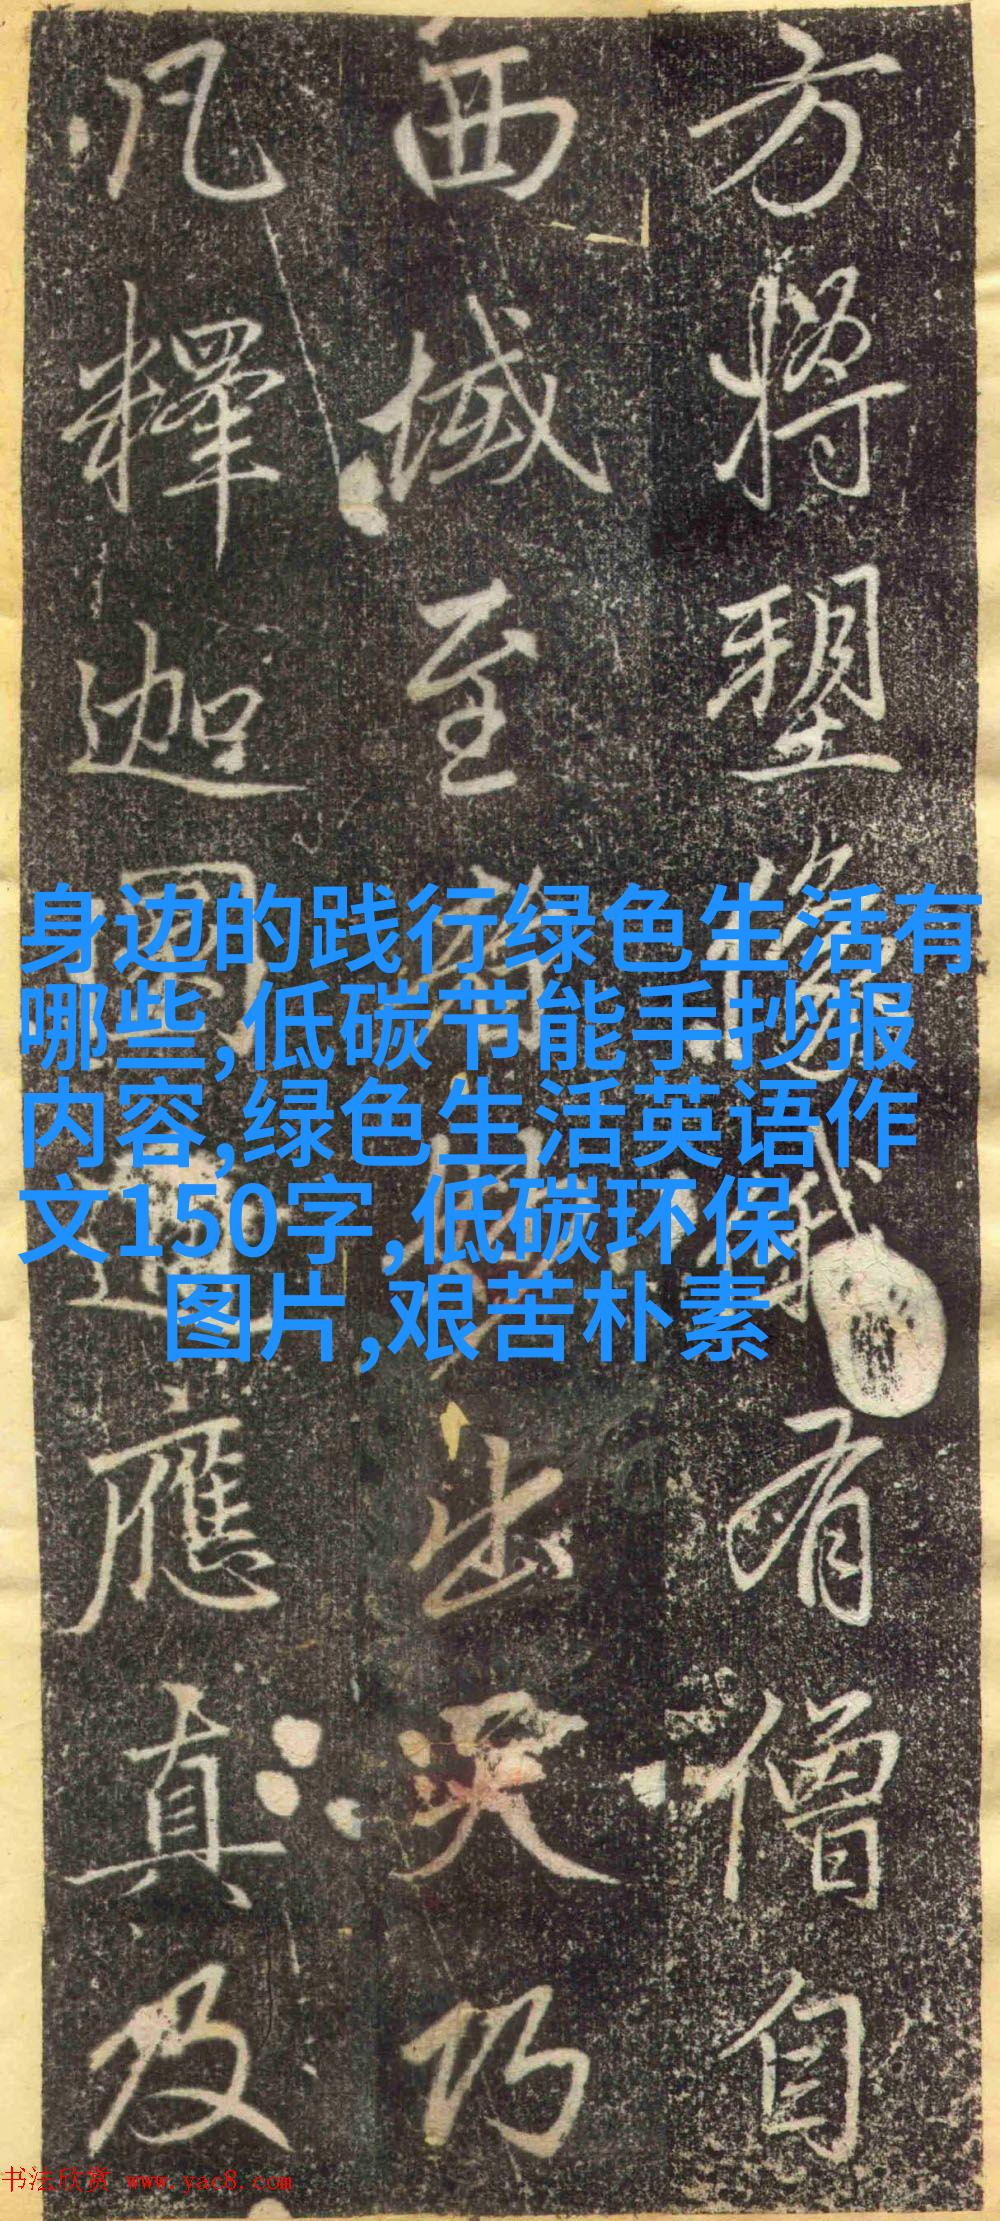 方將塑像有僧自
西域至出天巧
凡釋迦圓應真及
身边的践行绿色生活有
哪些,低碳节能手抄报
内容,绿色生活英语作
文150字,低碳环保
图片,艰苦朴素
书法欣赏 www.yac8.com